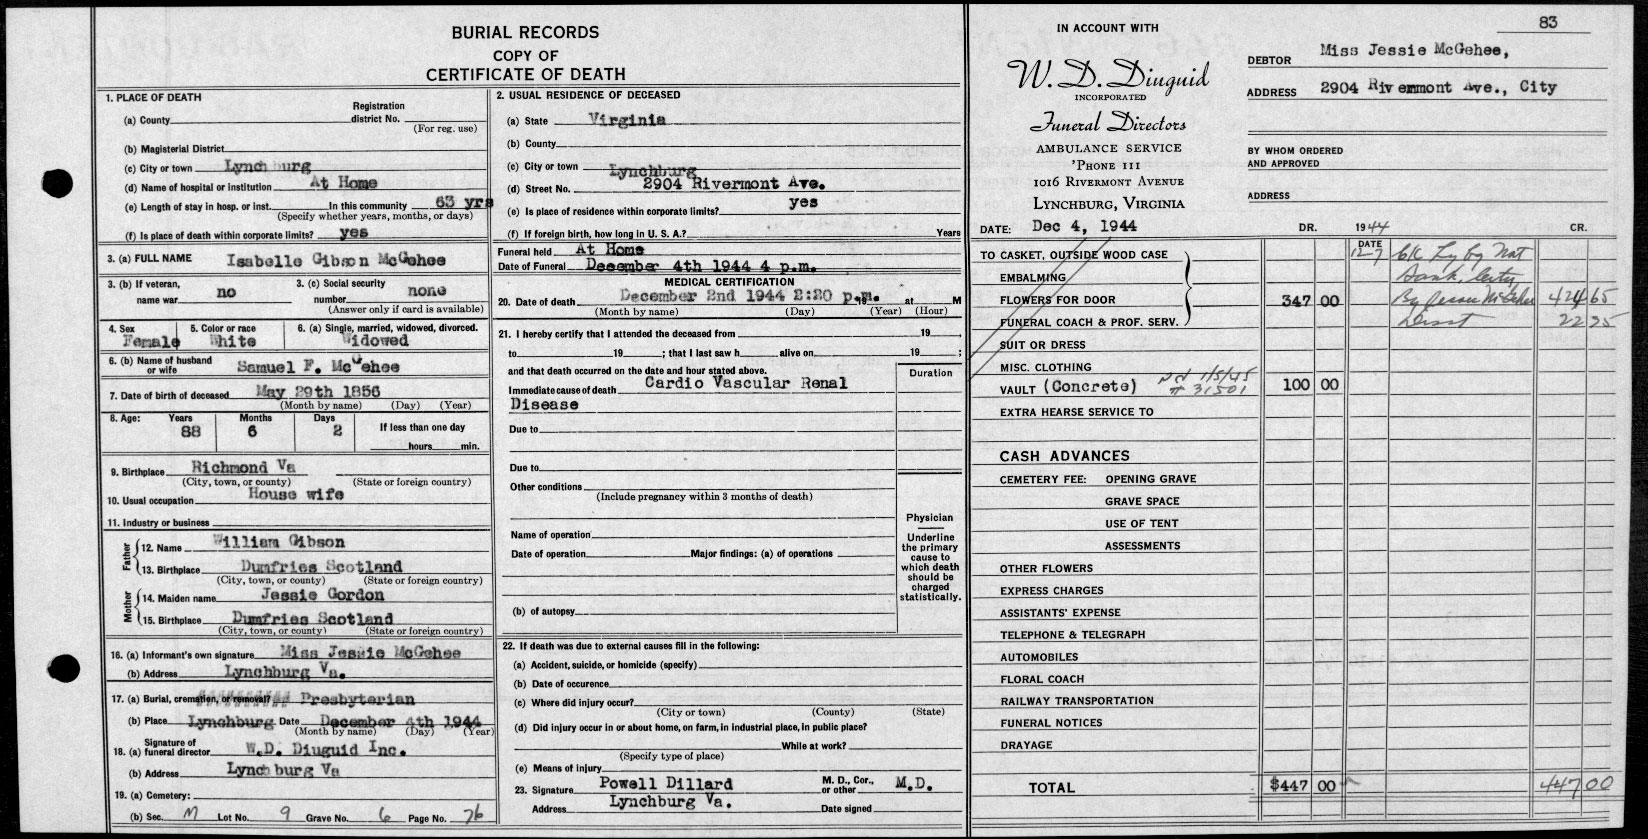 BURIAL RECORDS
COPY OF
CERTIFICATE OF DEATH
1. PLACE OF DEATH
(a) County Registration district No.
(For reg. use)
(b) Magisterial District
(c) City or town Lynchburg
(d) Name of hospital or institution At Home
(e) Length of stay in hosp. or inst. In this community 63 yrs
(Specify whether years, months, or days)
(f) Is place of death within corporate limits? yes
3. (a) FULL NAME Isabelle Gibson McGehee
3. (b) If veteran, name war no 3. (c) Social security number none
(Answer only if card is available)
4. Sex 5. Color or race 6. (a) Single, married, widowed, divorced.
Female White Widowed
6. (b) Name of husband or wife Samuel F. McGehee
7. Date of birth of deceased May 29th 1856
(Month by name) (Day) (Year)
8. Age: Years Months Days If less than one day
88 6 2 hours min.
9. Birthplace Richmond Va
(City, town, or county) (State or foreign country)
10. Usual occupation House wife
11. Industry or business
Father
12. Name William Gibson
13. Birthplace Dumfries Scotland
(City, town, or county) (State or foreign country)
Mother
14. Maiden name Jessie Gordon
15. Birthplace Dumfries Scotland
(City, town, or county) (State or foreign country)
16. (a) Informant's own signature Miss Jessie McGehee
(b) Address Lynchburg Va.
17. (a) Burial, cremation, or removal? Presbyterian
(b) Place Lynchburg Date December 4th 1944
(Month by name) (Day) (Year)
18. (a) Signature of funeral director W.D. Diuguid Inc.
(b) Address Lynchburg Va
19. (a) Cemetery:
(b) Sec. M Lot No. 9 Grave No. 6 Page No. 76
2. USUAL RESIDENCE OF DECEASED
(a) State Virginia
(b) County
(c) City or town Lynchburg
(d) Street No. 2904 Rivermont Ave.
(e) Is place of residence within corporate limits? yes
(f) If foreign birth, how long in U. S. A.? Years
Funeral held At Home
Date of Funeral December 4th 1944 4 p.m.
MEDICAL CERTIFICATION
20. Date of death December 2nd 1944 2:20 p.m. at M
(Month by name) (Day) (Year) (Hour)
21. I hereby certify that I attended the deceased from 19
to 19 ; that I last saw h alive on 19 ;
and that death occurred on the date and hour stated above. Duration
Immediate cause of death Cardio Vascular Renal
Disease
Due to
Due to
Other conditions
(Include pregnancy within 3 months of death)
Name of operation
Date of operation Major findings: (a) of operations
(b) of autopsy
Physician
Underline
the primary
cause to
which death
should be
charged
statistically.
22. If death was due to external causes fill in the following:
(a) Accident, suicide, or homicide (specify)
(b) Date of occurence
(c) Where did injury occur?
(City or town) (County) (State)
(d) Did injury occur in or about home, on farm, in industrial place, in public place?
While at work?
(Specify type of place)
(e) Means of injury
23. Signature Powell Dillard M. D., Cor., or other M.D.
Address Lynchburg Va. Date signed
83
IN ACCOUNT WITH
W. D. Diuguid
INCORPORATED
Funeral Directors
AMBULANCE SERVICE
'PHONE 111
1016 RIVERMONT AVENUE
LYNCHBURG, VIRGINIA
DATE: Dec 4, 1944
DEBTOR Miss Jessie McGehee,
ADDRESS 2904 Rivermont Ave., City
BY WHOM ORDERED
AND APPROVED
ADDRESS
DR. 1944 CR.
DATE
TO CASKET, OUTSIDE WOOD CASE 12-7 C/C Ly by Nat
EMBALMING Bank
FLOWERS FOR DOOR 347 00 By Jessie McGehee 424 65
FUNERAL COACH & PROF. SERV. Disct 22 35
SUIT OR DRESS
MISC. CLOTHING
VAULT (Concrete) 1/5/45 # 31501 100 00
EXTRA HEARSE SERVICE TO
CASH ADVANCES
CEMETERY FEE: OPENING GRAVE
GRAVE SPACE
USE OF TENT
ASSESSMENTS
OTHER FLOWERS
EXPRESS CHARGES
ASSISTANTS' EXPENSE
TELEPHONE & TELEGRAPH
AUTOMOBILES
FLORAL COACH
RAILWAY TRANSPORTATION
FUNERAL NOTICES
DRAYAGE
TOTAL $447 00 447 00